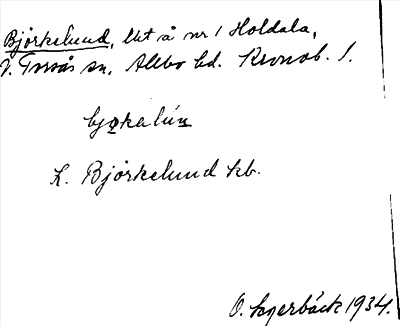 Björkelund, lht å nr 1 Holdala,
V. Torsås sn, Allbo hd. Kronob. l.
bjơkalún
K. Björkelund kb.
O. Lagerbäck 1934.